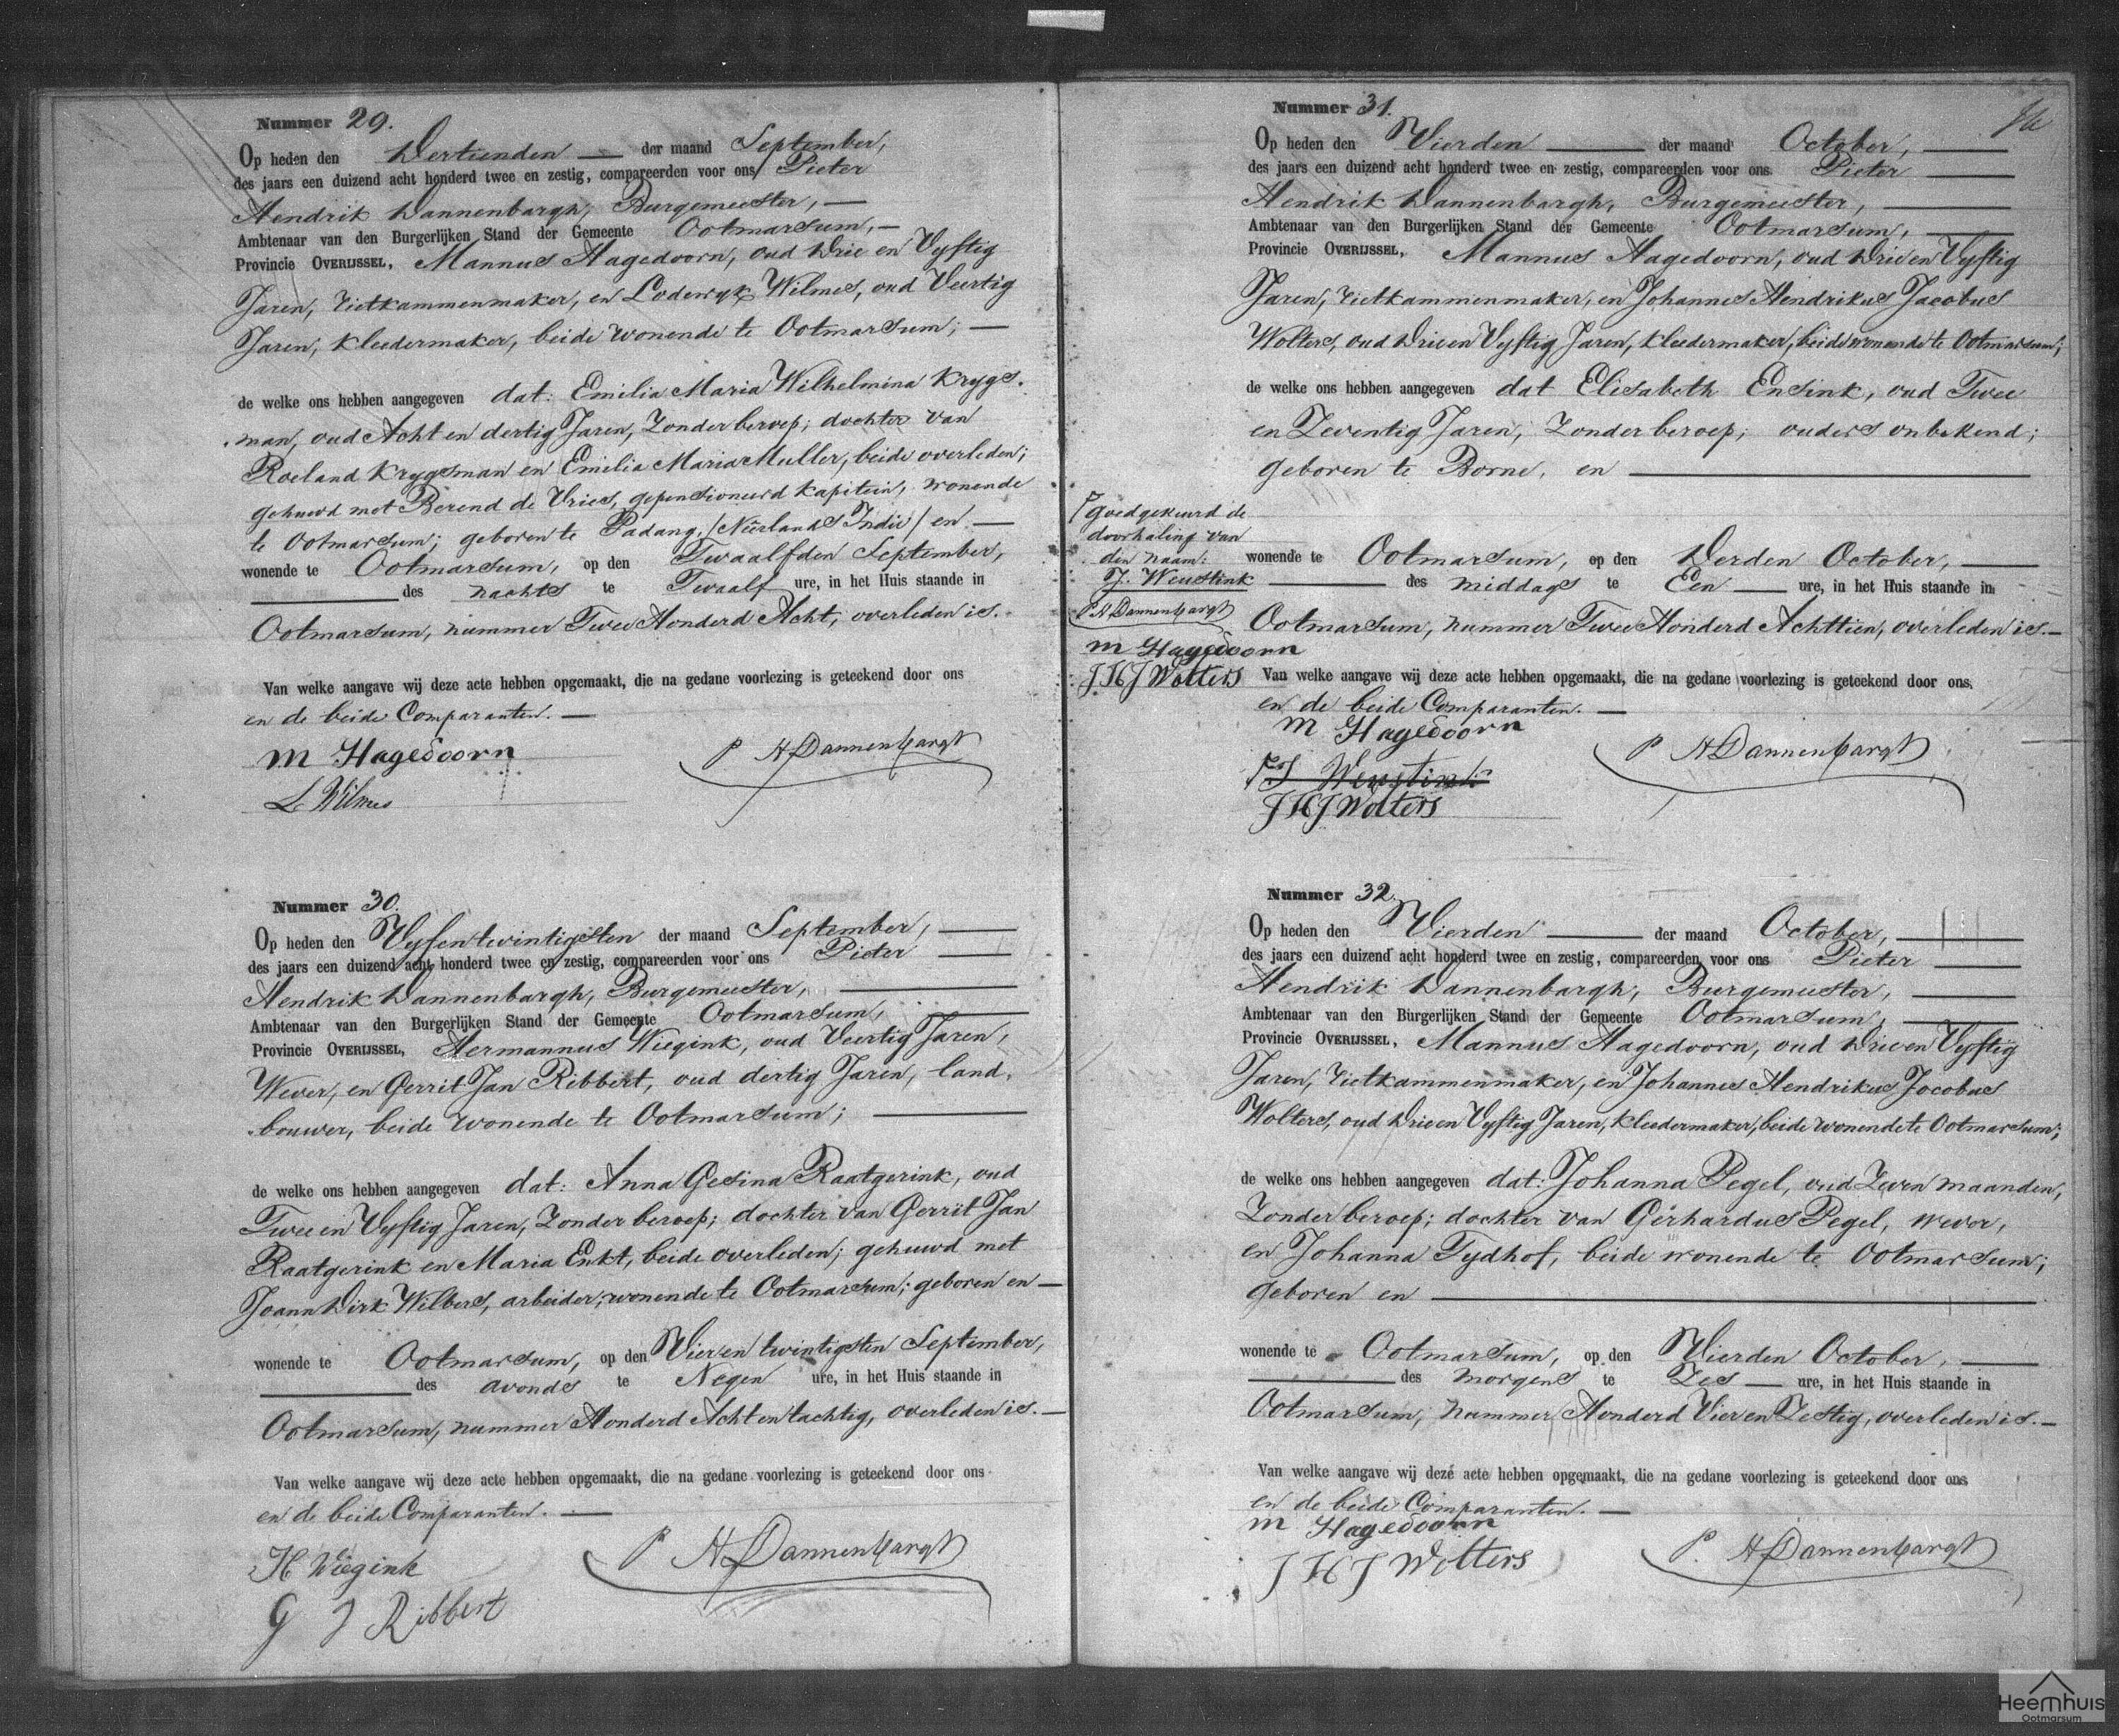 Nummer 29.
Op heden den Dertienden — der maand September,
des jaars een duizend acht honderd twee en zestig, compareerden voor ons Pieter
Hendrik Dannenbargh, Burgemeester, —
Ambtenaar van den Burgerlijken Stand der Gemeente Ootmarsum, —
Provincie OVERIJSSEL, Mannus Hagedoorn, oud Drie en Vyftig
Jaren, rietkammenmaker, en Lodewyk Wilmes, oud Veertig
Jaren, kleedermaker, beide wonende te Ootmarsum; —
de welke ons hebben aangegeven dat: Emilia Maria Wilhelmina Krygs-
man, oud Acht en dertig Jaren, Zonder beroep; dochter van
Roeland Krygsman en Emilia Maria Muller, beide overleden;
gehuwd met Berend de Vries, gepensioneerd kapitein, wonende
te Ootmarsum; geboren te Padang, /Neêrlands Indie/ en —
wonende te Ootmarsum, op den Twaalfden September,
— des nachts te Twaalf ure, in het Huis staande in
Ootmarsum, nummer Twee Honderd Acht, overleden is.
Van welke aangave wij deze acte hebben opgemaakt, die na gedane voorlezing is geteekend door ons
en de beide Comparanten. —
M Hagedoorn P H Dannenbargh
L Wilmes
Nummer 30.
Op heden den Vyfentwintigsten der maand September, —
des jaars een duizend acht honderd twee en zestig, compareerden voor ons Pieter —
Hendrik Dannenbargh, Burgemeester, —
Ambtenaar van den Burgerlijken Stand der Gemeente Ootmarsum, —
Provincie OVERIJSSEL, Hermannus Wiegink, oud Veertig Jaren,
Wever, en Gerrit Jan Ribbert, oud dertig Jaren, land-
bouwer, beide wonende te Ootmarsum; —
de welke ons hebben aangegeven dat: Anna Gesina Raatgerink, oud
Twee en Vyftig Jaren, Zonder beroep; dochter van Gerrit Jan
Raatgerink en Maria Enkt, beide overleden; gehuwd met
Joann Dirk Wilbers, arbeider, wonende te Ootmarsum; geboren en —
wonende te Ootmarsum, op den Vier en twintigsten September,
— des avonds te Negen ure, in het Huis staande in
Ootmarsum, nummer Honderd Acht en tachtig, overleden is. —
Van welke aangave wij deze acte hebben opgemaakt, die na gedane voorlezing is geteekend door ons
en de beide Comparanten. —
H Wiegink P H Dannenbargh
G J Ribbert
Nummer 31.
Op heden den Vierden — der maand October, —
des jaars een duizend acht honderd twee en zestig, compareerden voor ons Pieter —
Hendrik Dannenbargh, Burgemeester, —
Ambtenaar van den Burgerlijken Stand der Gemeente Ootmarsum, —
Provincie OVERIJSSEL, Mannus Hagedoorn, oud Drie en Vyftig
Jaren, rietkammenmaker, en Johannes Hendrikus Jacobus
Wolters, oud Drie en Vyftig Jaren, kleedermaker, beide wonende te Ootmarsum;
de welke ons hebben aangegeven dat Elisabeth Ensink, oud Twee
en Zeventig Jaren, Zonder beroep; ouders onbekend;
geboren te Borne, en —
wonende te Ootmarsum, op den Derden October, —
— des middags te Een — ure, in het Huis staande in
Ootmarsum, nummer Twee Honderd Achttien, overleden is. —
Van welke aangave wij deze acte hebben opgemaakt, die na gedane voorlezing is geteekend door ons
en de beide Comparanten. —
M Hagedoorn P H Dannenbargh
J Weustink
J H J Wolters
goedgekeurd de
doorhaling van
den naam:
J. Weustink
P. H Dannenbargh
M Hagedoorn
J H J Wolters
Nummer 32.
Op heden den Vierden — der maand October, —
des jaars een duizend acht honderd twee en zestig, compareerden voor ons Pieter —
Hendrik Dannenbargh, Burgemeester, —
Ambtenaar van den Burgerlijken Stand der Gemeente Ootmarsum, —
Provincie OVERIJSSEL, Mannus Hagedoorn, oud Drie en Vyftig
Jaren, rietkammenmaker, en Johannes Hendrikus Jocobus
Wolters, oud Drie en Vyftig Jaren, kleedermaker, beide wonende te Ootmarsum;
de welke ons hebben aangegeven dat: Johanna Pegel, oud Zeven maanden,
Zonder beroep; dochter van Gerhardus Pegel, wever,
en Johanna Tydhof, beide wonende te Ootmarsum;
geboren en —
wonende te Ootmarsum, op den Vierden October, —
— des morgens te Zes — ure, in het Huis staande in
Ootmarsum, nummer Honderd Vier en Zestig, overleden is. —
Van welke aangave wij deze acte hebben opgemaakt, die na gedane voorlezing is geteekend door ons
en de beide Comparanten. —
M Hagedoorn
J H J Wolters P. H Dannenbargh
Heemhuis
Ootmarsum